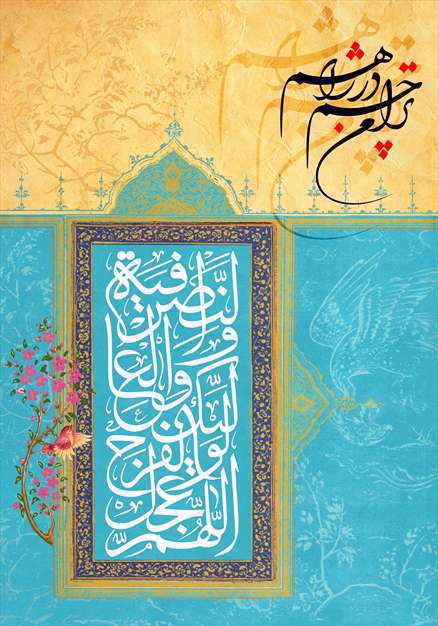 ترا من چشم در راهم
اللّهمّ عجّل لولیك الفرج والعافیة والنّصر